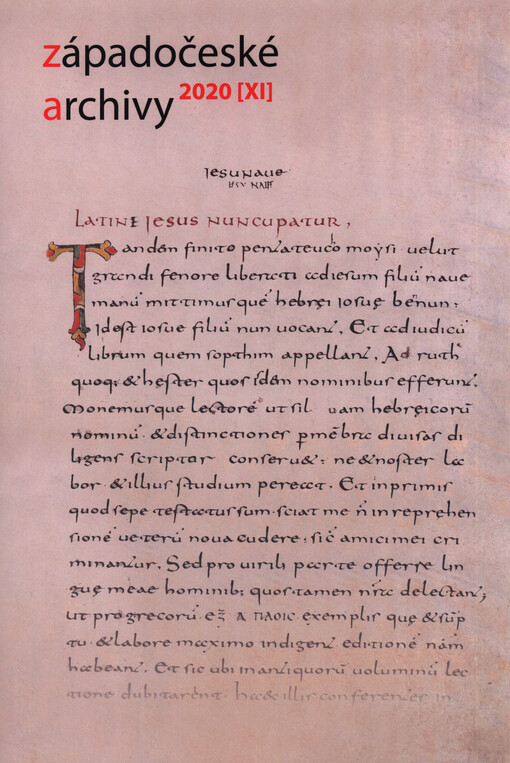 západočeské
archivy 2020 [XI]
ιesuɴaue
ιɪsv ɴaɪɪf
Latine Jesus nuncupatur,
Tanden finito penzateucō moẏsi· uelut
grandi fenore liberati adiesum filiū naue
manū mittimus quē hebręi iosuę bēnun;
idest iosue filiū nun uocant. Et adiudicū
librum quem sopthim appellant. Ad ruth
quoq; & hęster quos isdem nominibus efferunt.
Monemusque lectorē ut sil uam hebręicorū
nominū· & distinctiones p mēbra diuisas di
ligens scriptor conseru&; ne & noster la
bor· & illius studium pereat. Et inprimis
quod sepe testatus sum· sciat me ñ in reprehen
sionē ueterū noua cudere; sič amici mei cri
minantur. Sed pro uirili parte offerre lin
guę meae hominib; quos tamen nr̄a delectant;
ut pro grecorū exemplis quę & sūp
tu· & labore maximo indigent editionē nr̄am
habeant. Et sicubi in antiquorū uoluminū lec
tione dubitarent· haec illis conferentes in